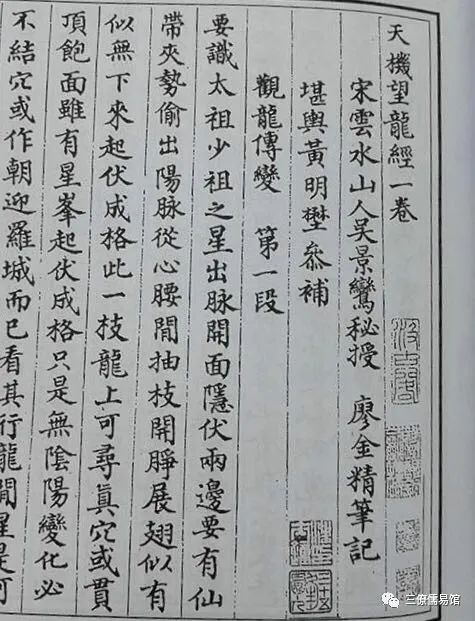 天機望龍經一卷
宋雲水山人吴景鸞秘授 廖金精筆記
堪輿黃明㙉叅補
觀龍傳變 第一段
要識太祖少祖之星出脉開面隱伏兩邊要有仙
帶夾勢偷出陽脉從心腰間抽枝開睜展翅似有
似無下來起伏成格此一枝龍上可尋眞穴或貫
頂飽面雖有星峯起伏成格只是無陰陽變化必
不結穴或作朝迎羅城而已看其行龍間星是何
三僚儒易馆